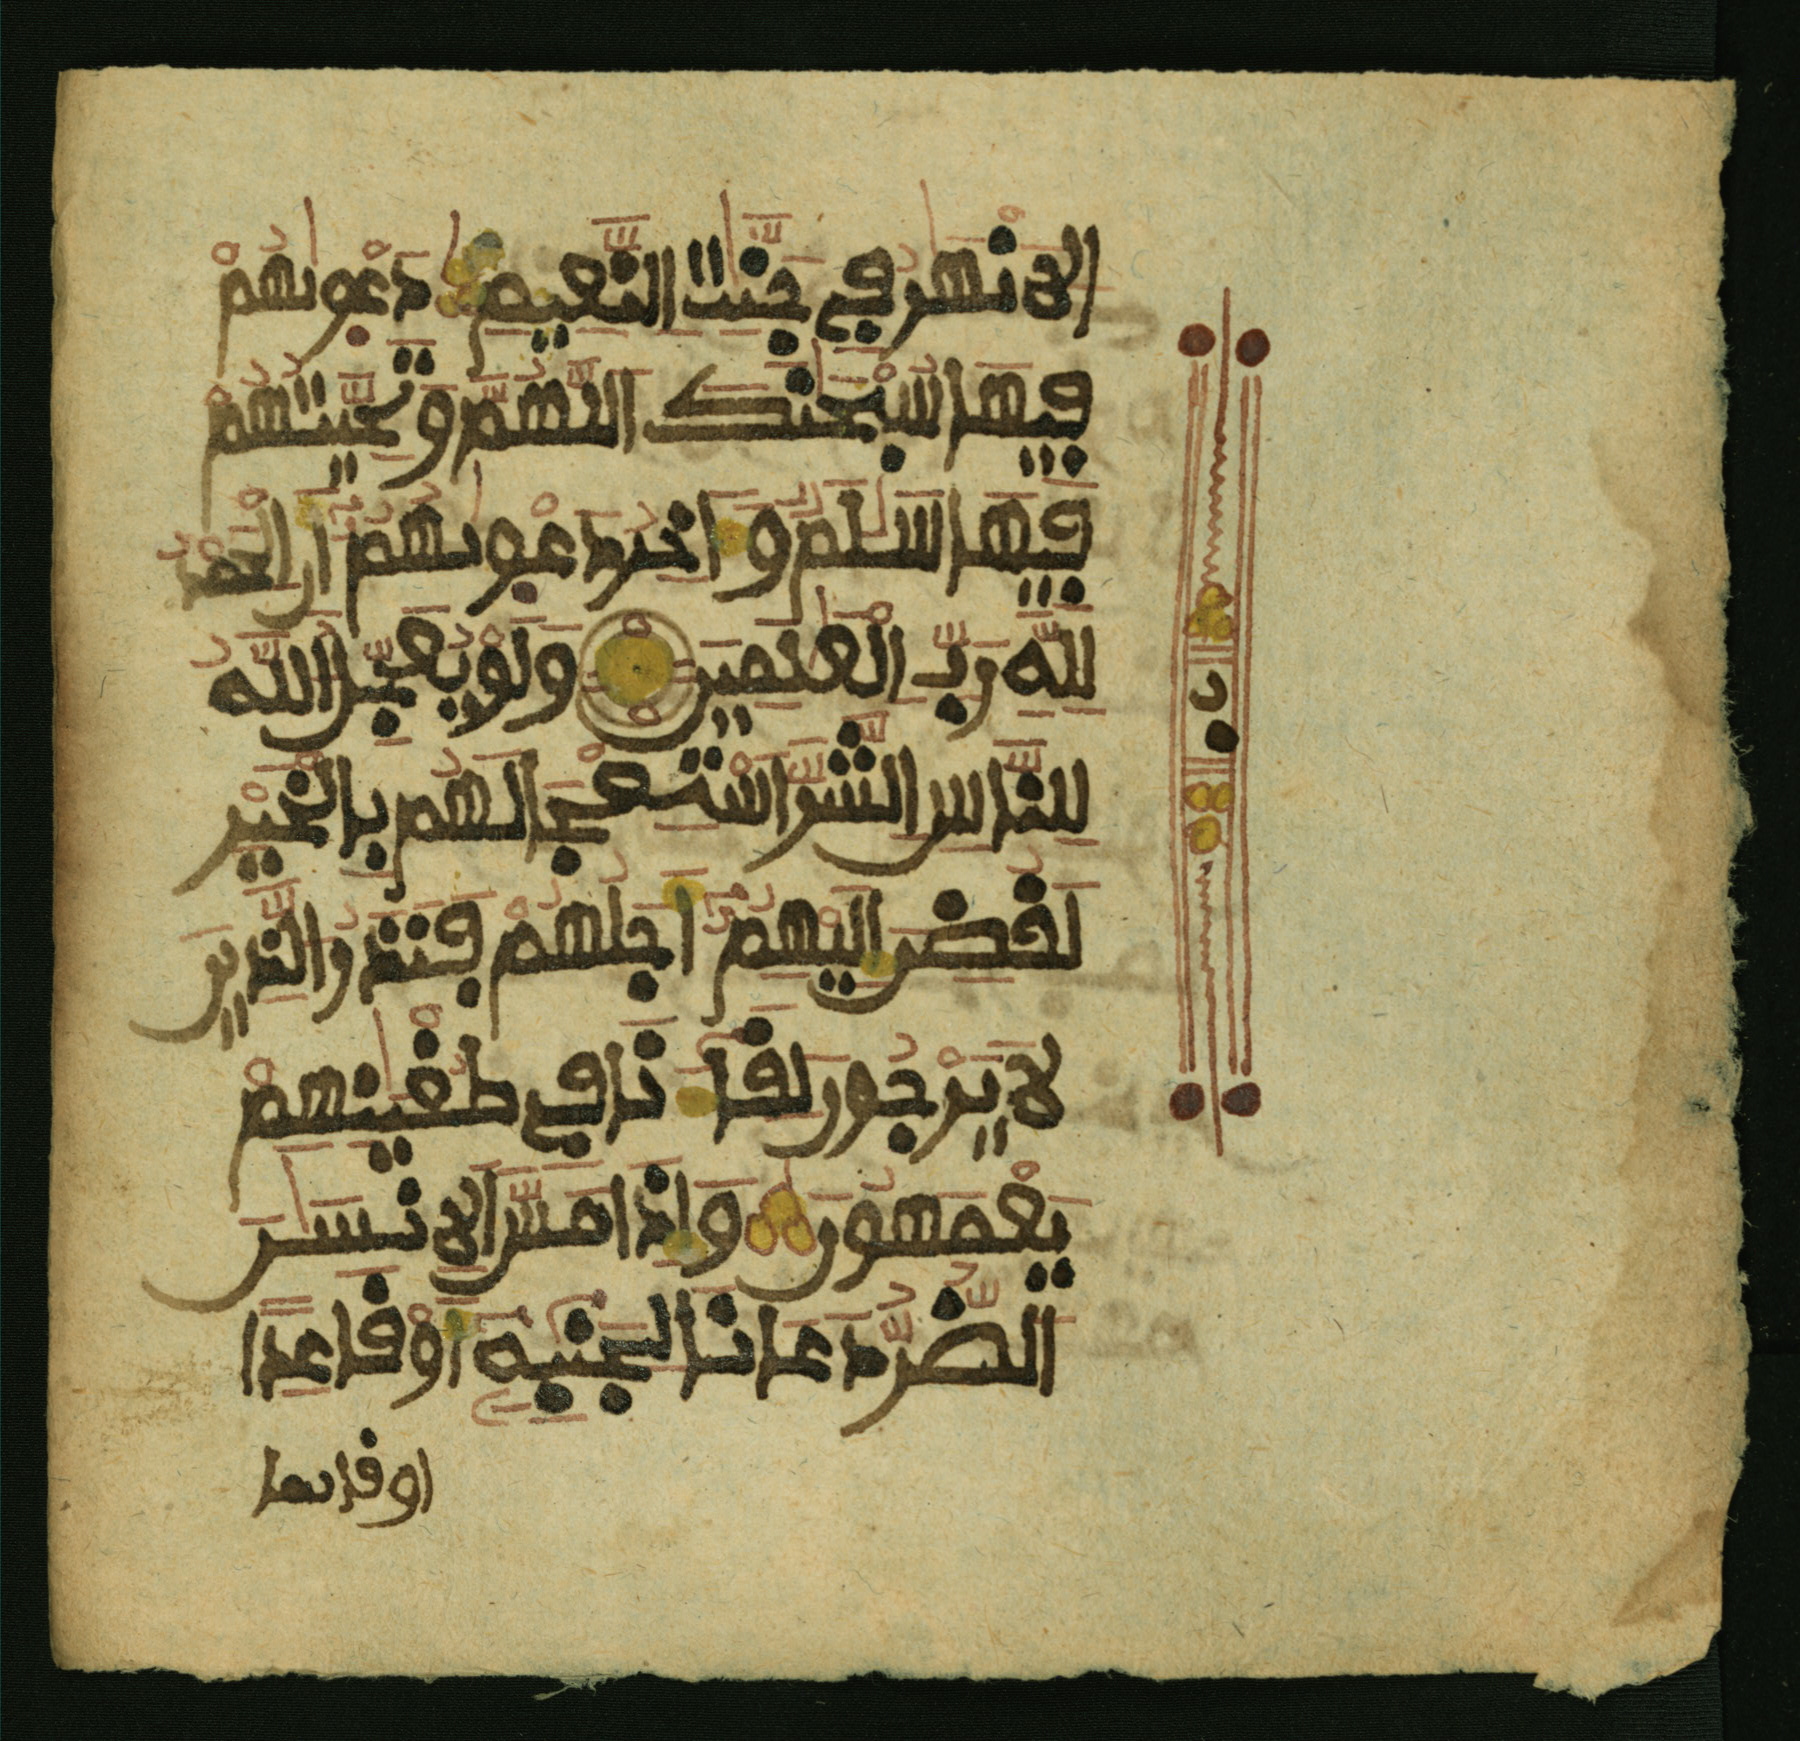 الانهر في جنت النعيم دعويهم
فيها سبحنك اللهم وتحيتهم
فيها سلم واخر دعويهم ان الحمد
لله رب العلمين ولو يعجل الله
للناس الشر استعجالهم بالخير
لقضي اليهم اجلهم فنذر الذين
لا يرجون لقانا في طغينهم
يعمهون واذا مس الانسن
الضر دعانا لجنبه او قاعدا
او قايما